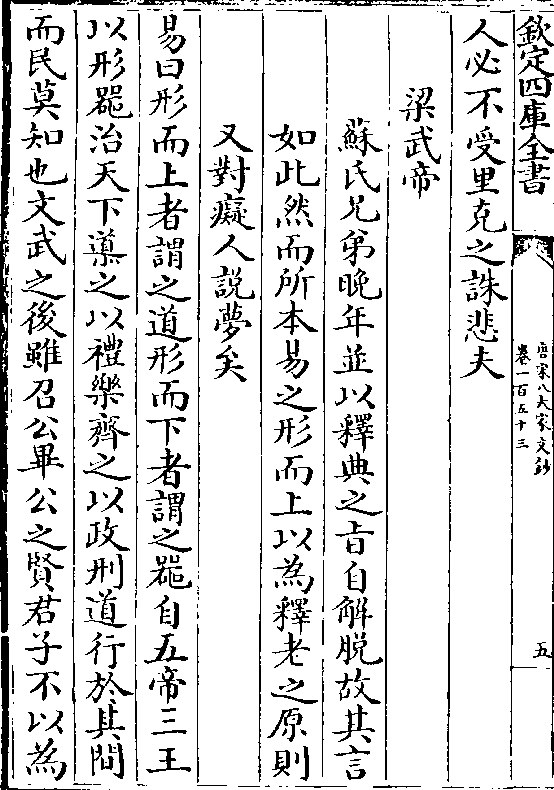 欽定四庫全書
唐宋八大家文鈔
卷一百五十三
五
人必不受里克之誅悲夫
梁武帝
蘇氏兄弟晚年並以釋典之㫖自解脫故其言
如此然而所本易之形而上以為釋老之原則
又對癡人説夢矣
易曰形而上者謂之道形而下者謂之噐自五帝三王
以形噐治天下導之以禮樂齊之以政刑道行於其間
而民莫知也文武之後雖召公畢公之賢君子不以為